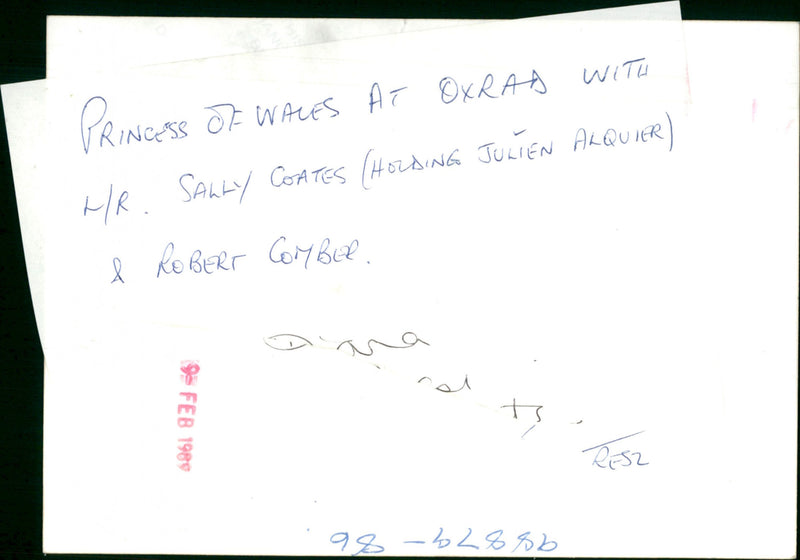 PRINCESS OF WALES AT OXRAD WITH
L/R. SALLY COATES (HOLDING JULIEN ALQUIER)
& ROBERT COMBER.
Diana
FEB 1989